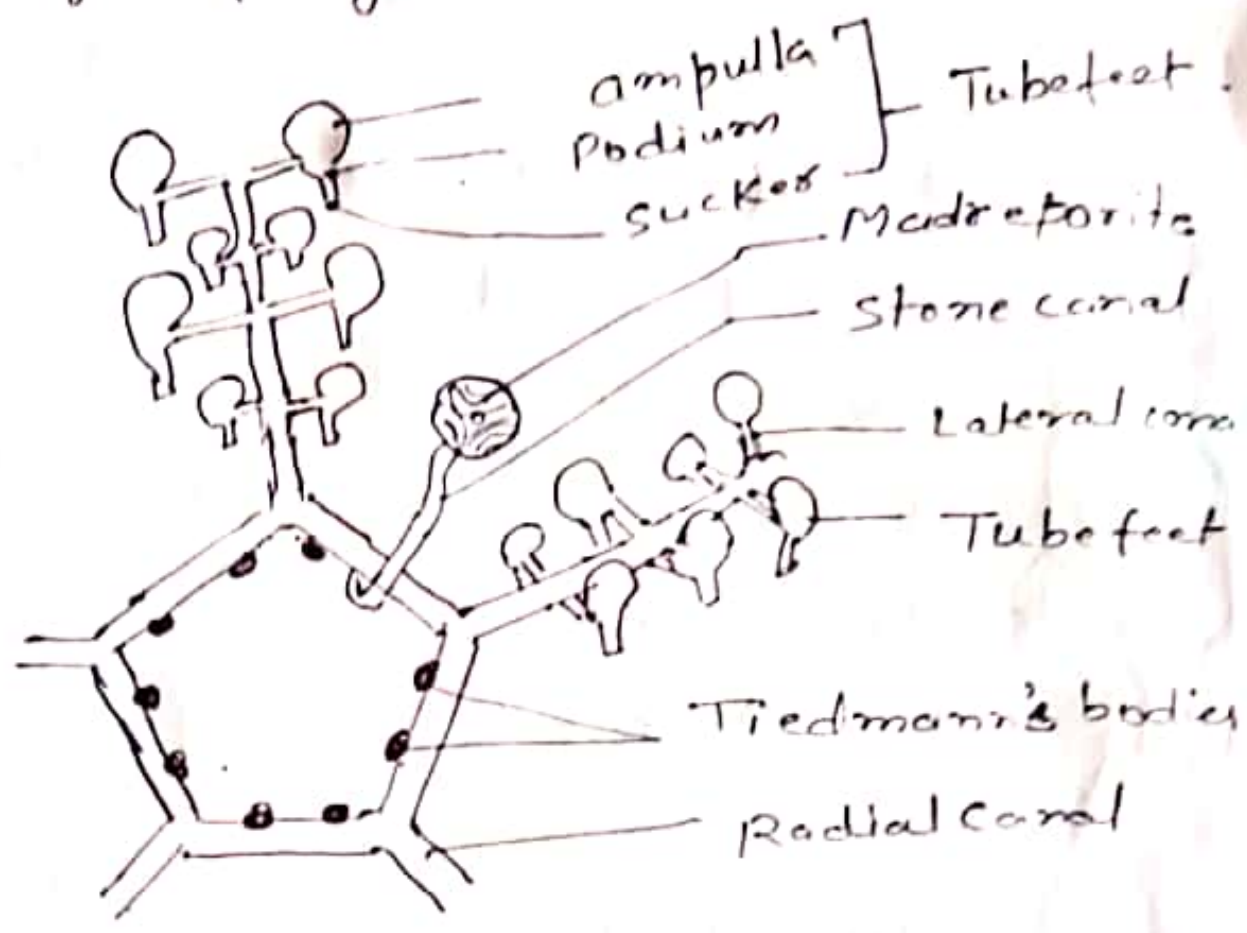 ampulla
Podium
Sucker
Tubefeet.
Madreporite
Stone canal
Lateral
Tube feet
Tiedmann's bodies
Radial Canal